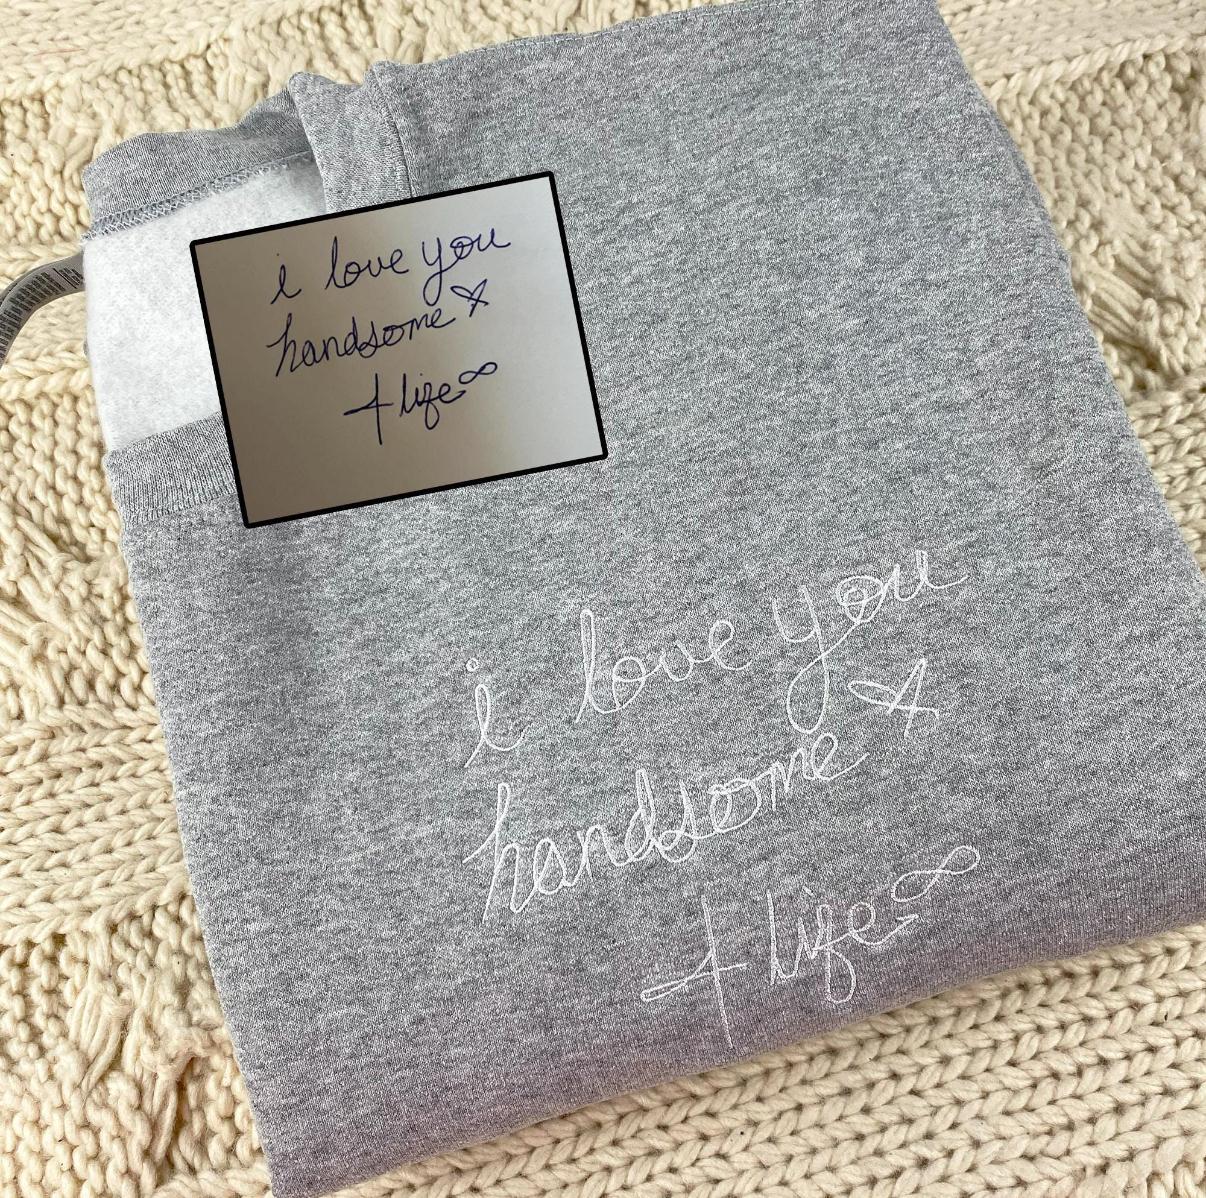 i love you
handsome
4 life∞
i love you
handsome
4 life∞